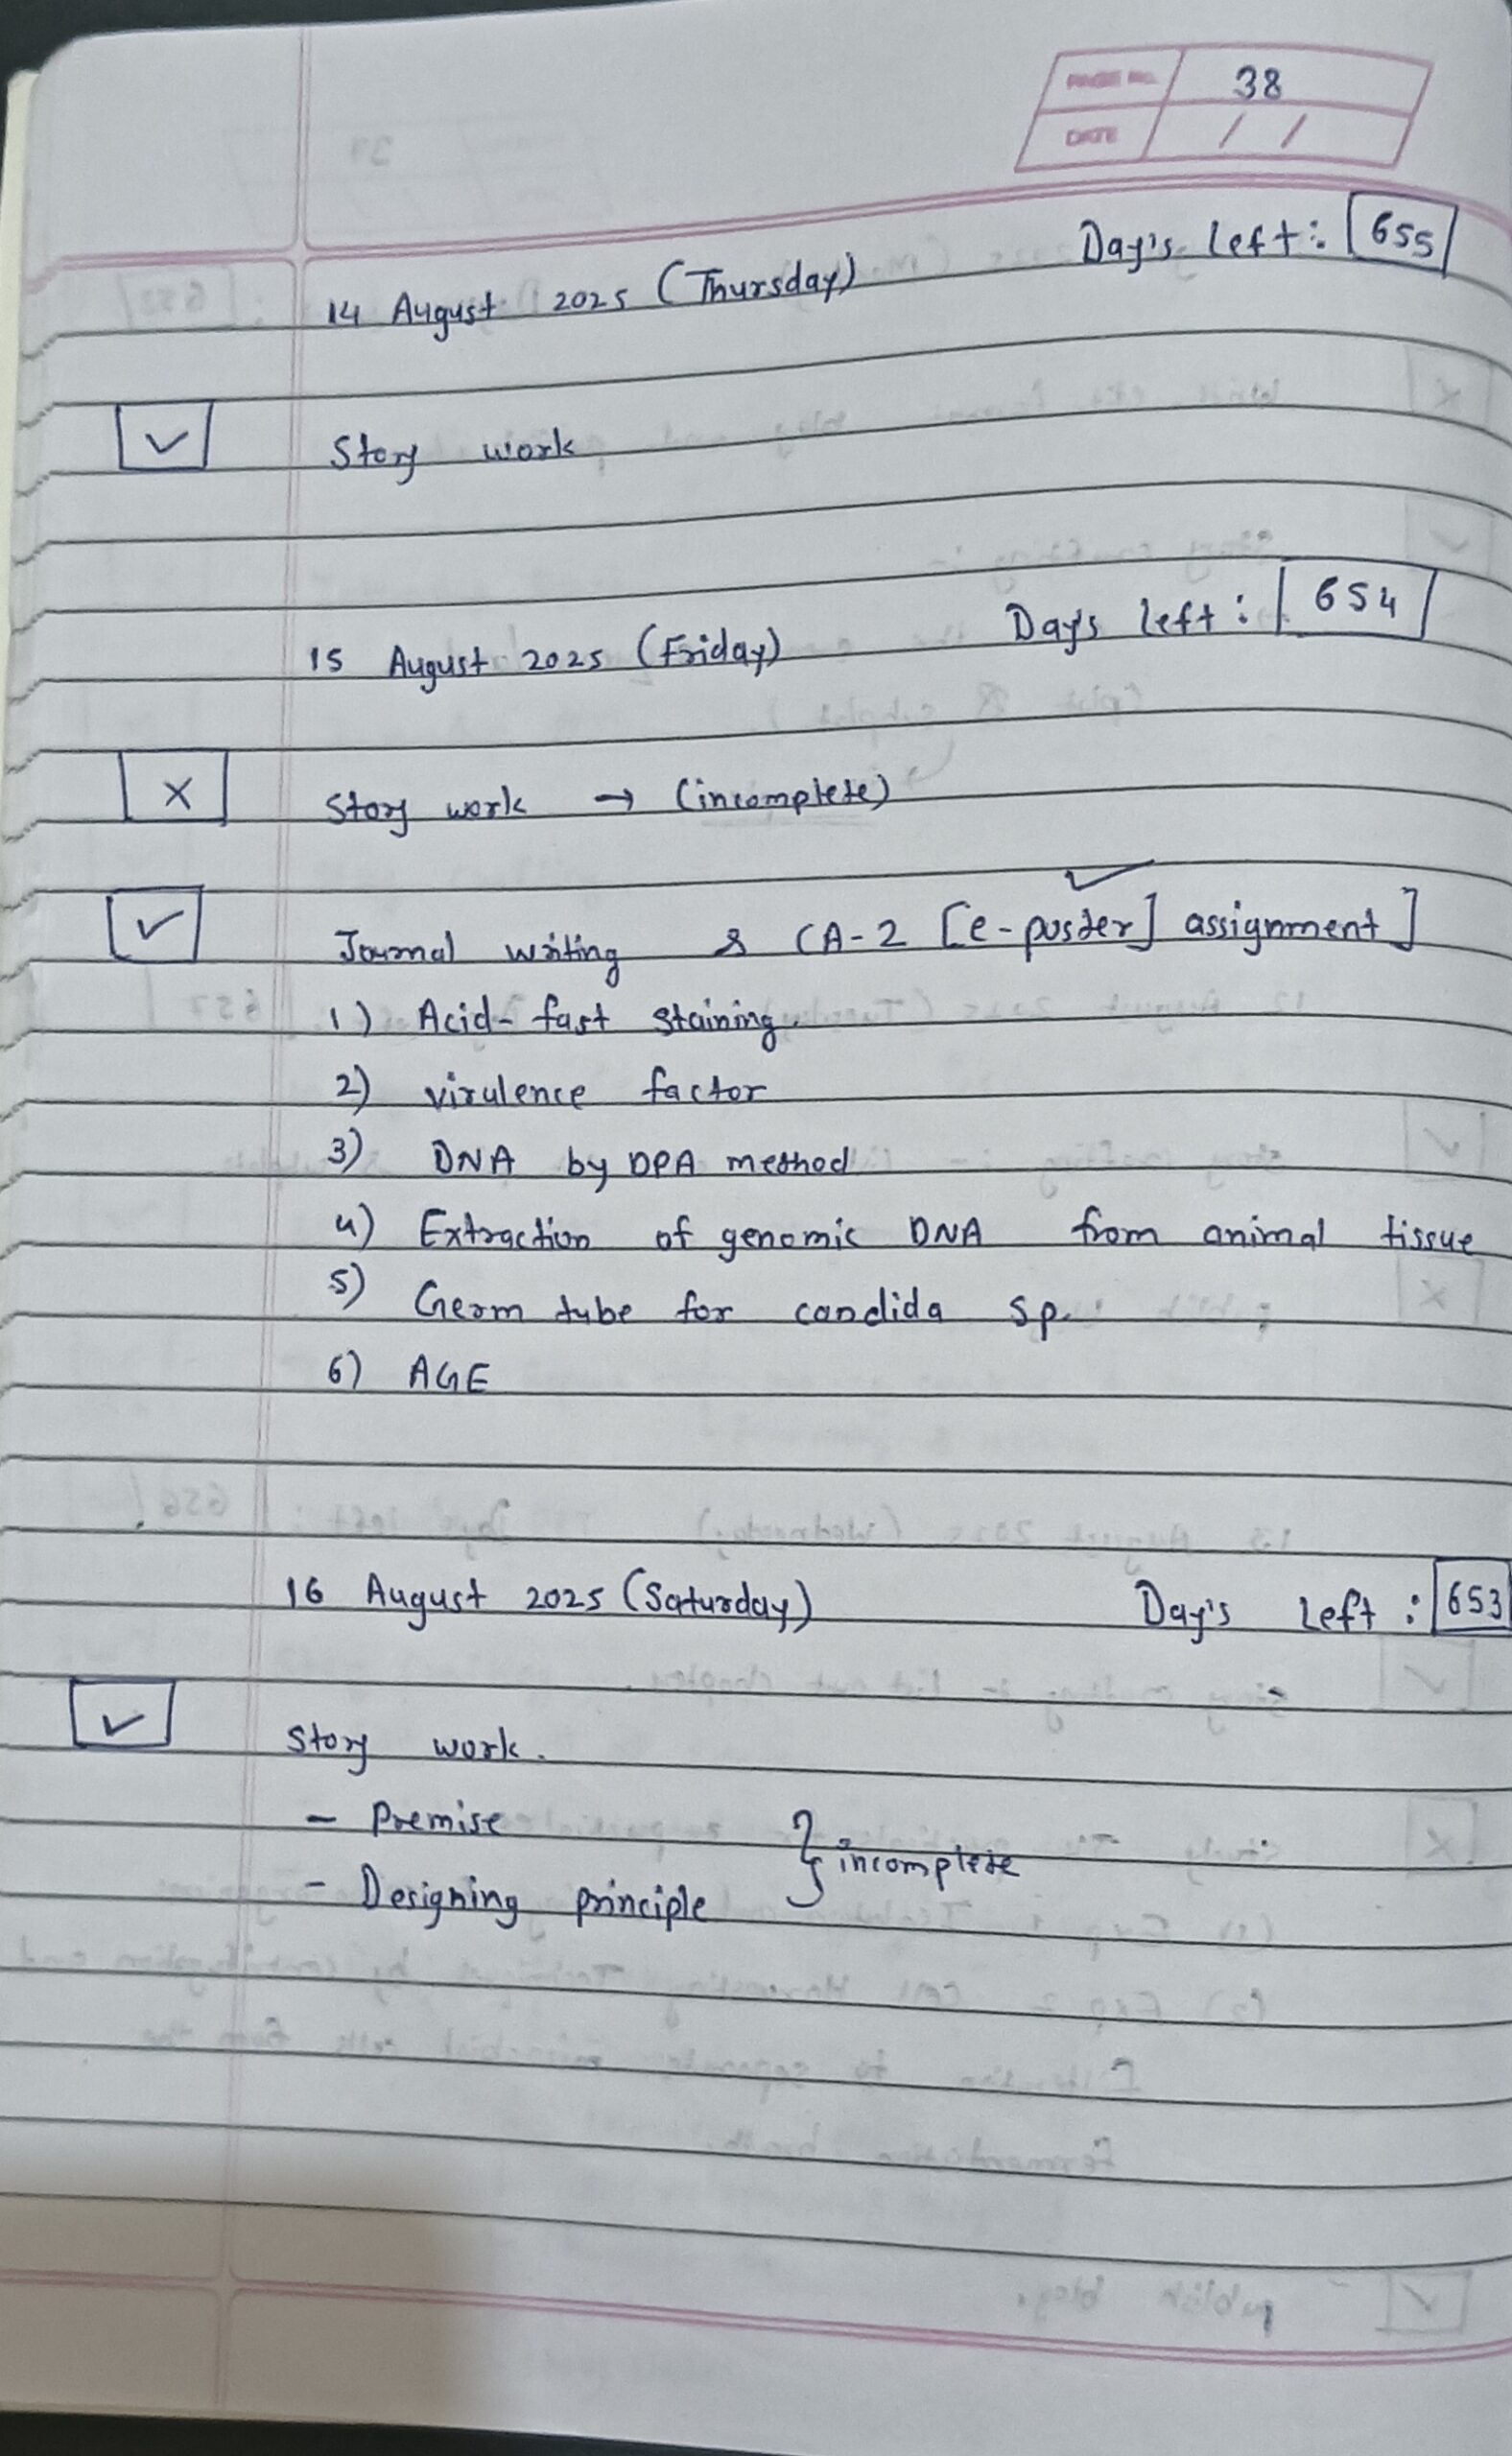 PAGE NO. 38
DATE / /
Day's left: 655
14 August 2025 (Thursday)
✓ Story work
Days left: 654
15 August 2025 (Friday)
x Story work → (incomplete)
✓ Journal writing & CA-2 [e-poster] assignment] ✓
1) Acid-fast staining.
2) virulence factor
3) DNA by DPA method
4) Extraction of genomic DNA from animal tissue
5) Germ tube for candida sp.
6) AGE
16 August 2025 (Saturday) Day's left: 653
✓ Story work.
- Premise
- Designing principle } incomplete